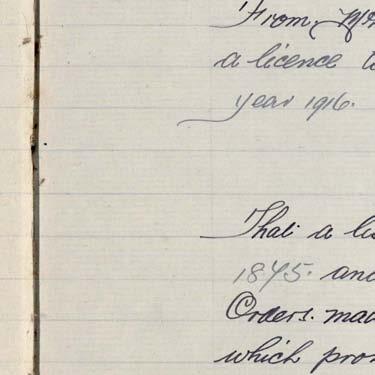 From, M
a licence t
year 1916.
That a lis
1845. and
Orders. mad
which pro